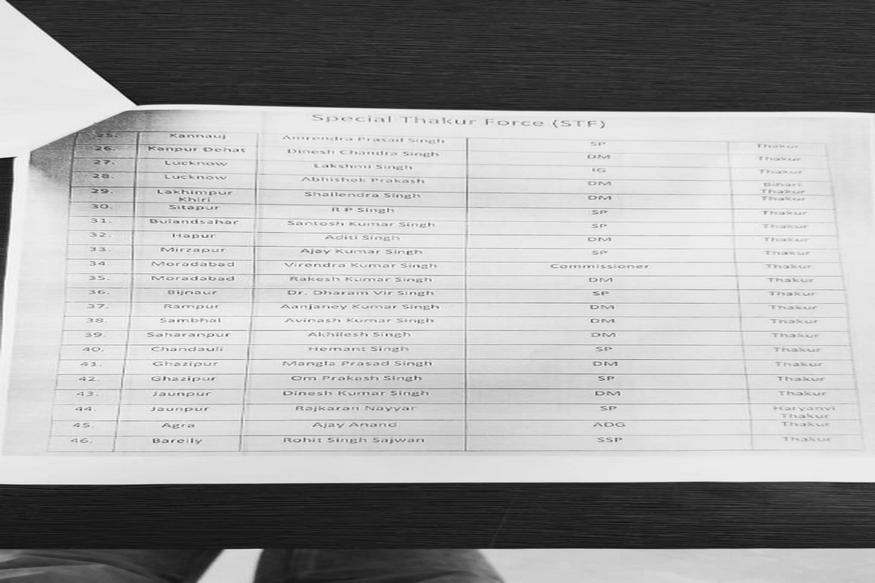 Special Thakur Force (STF)
25. Kannauj Amrendra Prasad Singh SP Thakur
26. Kanpur Dehat Dinesh Chandra Singh DM Thakur
27. Lucknow Lakshmi Singh IG Thakur
28. Lucknow Abhishek Prakash DM Bihari Thakur
29. Lakhimpur Khiri Shailendra Singh DM Thakur
30. Sitapur R P Singh SP Thakur
31. Bulandsahar Santosh Kumar Singh SP Thakur
32. Hapur Aditi Singh DM Thakur
33. Mirzapur Ajay Kumar Singh SP Thakur
34. Moradabad Virendra Kumar Singh Commissioner Thakur
35. Moradabad Rakesh Kumar Singh DM Thakur
36. Bijnaur Dr. Dharam Vir Singh SP Thakur
37. Rampur Aanjaney Kumar Singh DM Thakur
38. Sambhal Avinash Kumar Singh DM Thakur
39. Saharanpur Akhilesh Singh DM Thakur
40. Chandauli Hemant Singh SP Thakur
41. Ghazipur Mangla Prasad Singh DM Thakur
42. Ghazipur Om Prakash Singh SP Thakur
43. Jaunpur Dinesh Kumar Singh DM Thakur
44. Jaunpur Rajkaran Nayyar SP Haryanvi Thakur
45. Agra Ajay Anand ADG Thakur
46. Bareily Rohit Singh Sajwan SSP Thakur